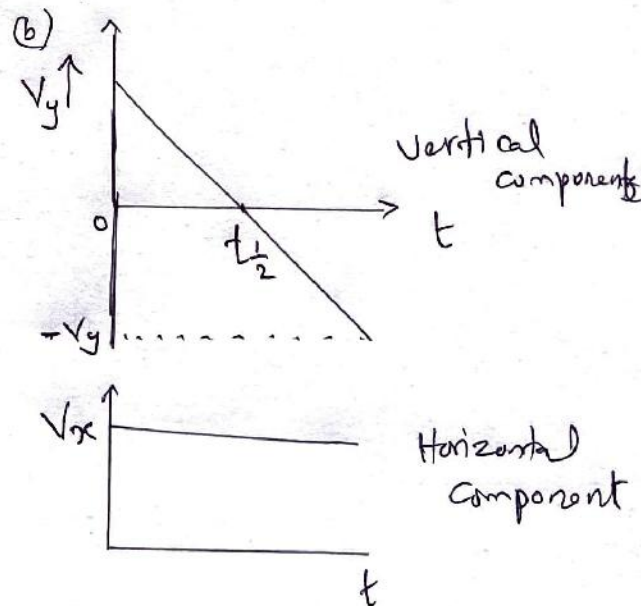 (b)
Vy
Vertical
components
0
t 1/2
t
-Vy
Vx
Horizontal
component
t